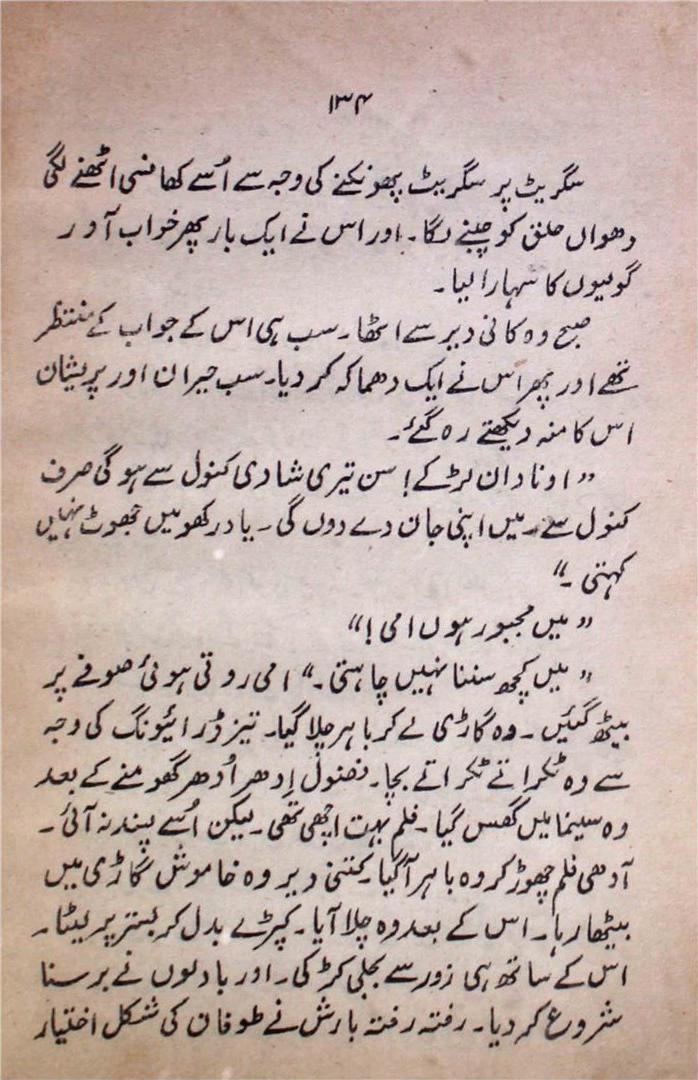 ۱۳۴
سگریٹ پر سگریٹ پھونکنے کی وجہ سے اُسے کھانسی اٹھنے لگی
دھواں حلق کو چبنے لگا۔ اور اس نے ایک بار پھر خواب آور
گولیوں کا سہارا لیا۔
صبح وہ کافی دیر سے اٹھا۔ سب ہی اس کے جواب کے منتظر
تھے اور پھر اس نے ایک دھماکہ کر دیا۔ سب حیران اور پریشان
اس کا منہ دیکھتے رہ گئے۔
”او نادان لڑکے! سن تیری شادی کنول سے ہو گی صرف
کنول سے۔ میں اپنی جان دے دوں گی۔ یاد رکھو میں جھوٹ نہیں
کہتی۔“
”میں مجبور ہوں امی!“
”میں کچھ سننا نہیں چاہتی۔“ امی روتی ہوئی صوفے پر
بیٹھ گئیں۔ وہ گاڑی لے کر باہر چلا گیا۔ تیز ڈرائیونگ کی وجہ
سے وہ ٹکراتے ٹکراتے بچا۔ فضول اِدھر اُدھر گھومنے کے بعد
وہ سینما میں گھس گیا۔ فلم بہت اچھی تھی۔ لیکن اُسے پسند نہ آئی۔
آدھی فلم چھوڑ کر وہ باہر آ گیا۔ کتنی دیر وہ خاموش گاڑی میں
بیٹھا رہا۔ اس کے بعد وہ چلا آیا۔ کپڑے بدل کر بستر پر لیٹا۔
اس کے ساتھ ہی زور سے بجلی کڑکی۔ اور بادلوں نے برسنا
شروع کر دیا۔ رفتہ رفتہ بارش نے طوفان کی شکل اختیار